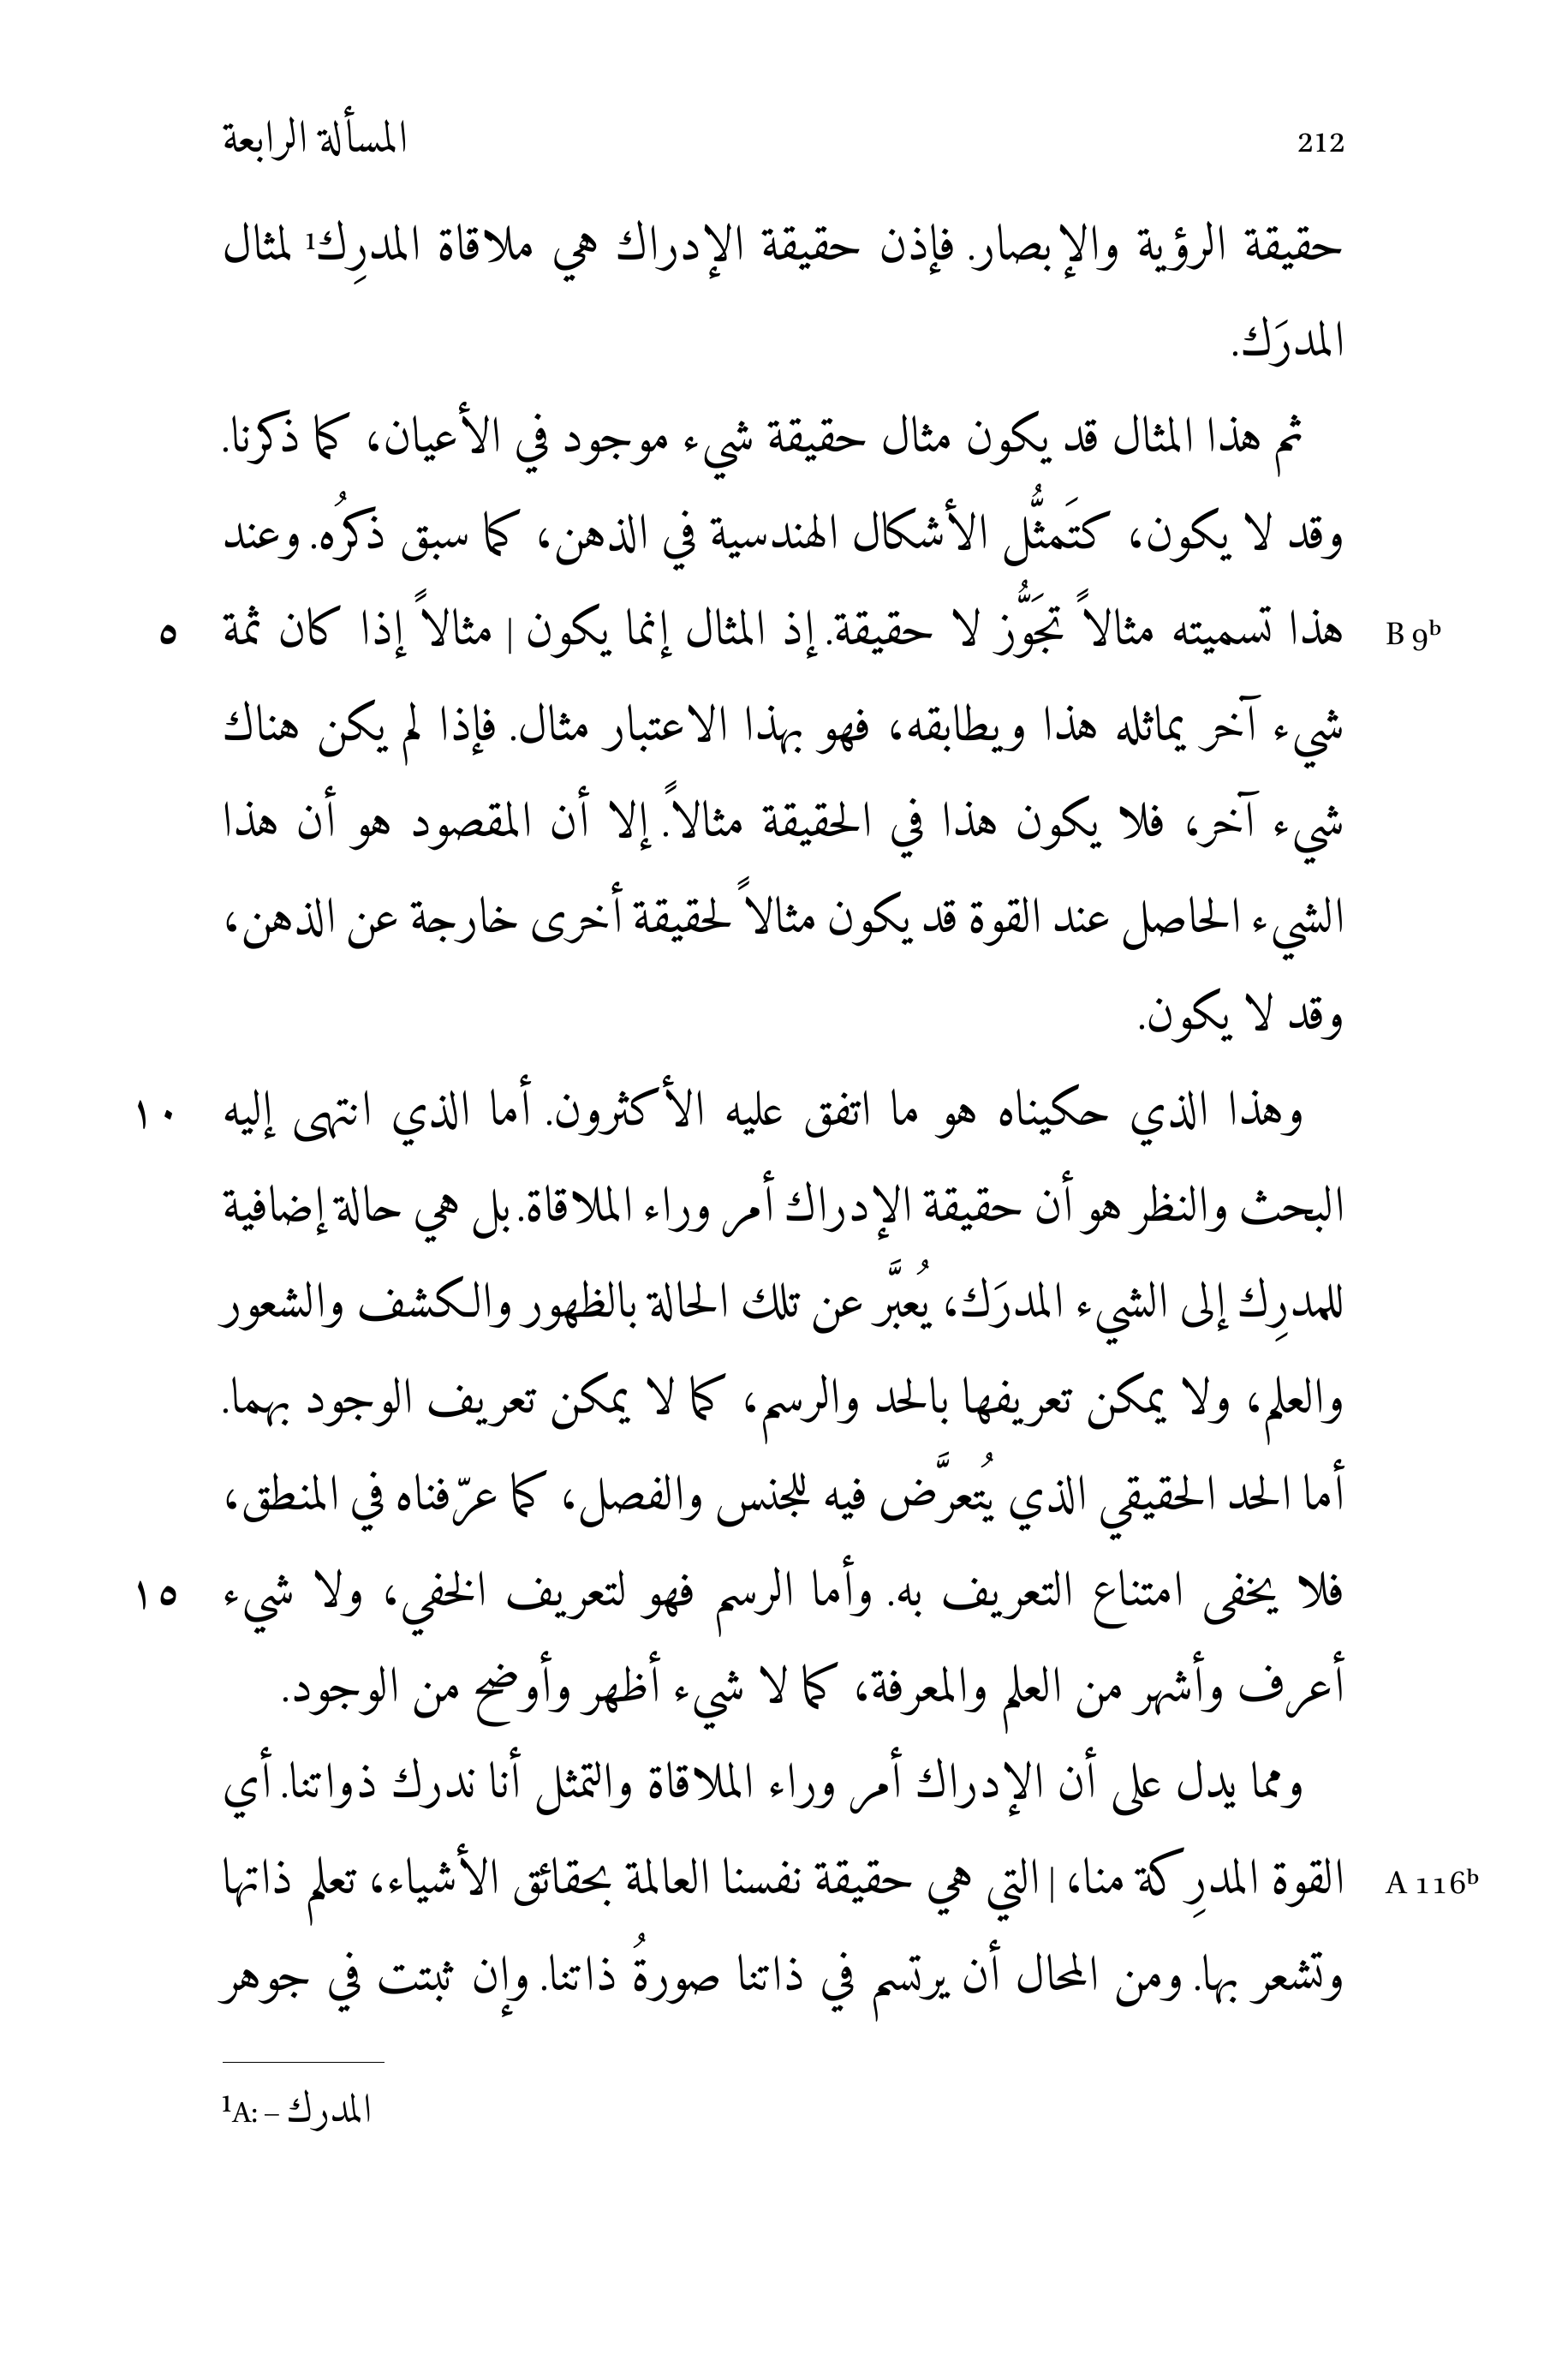 212 المسألة الرابعة
حقيقة الرؤية والإبصار. فإذن حقيقة الإدراك هي ملاقاة المدرِك¹ لمثال
المدرَك.
ثم هذا المثال قد يكون مثال حقيقة شيء موجود في الأعيان، كما ذكرنا.
وقد لا يكون، كتَمثُّل الأشكال الهندسية في الذهن، كما سبق ذكرُه. وعند
B 9ᵇ هذا تسميته مثالاً تجَوُّز لا حقيقة. إذ المثال إنما يكون | مثالاً إذا كان ثمة ٥
شيء آخر يماثله هذا ويطابقه، فهو بهذا الاعتبار مثال. فإذا لم يكن هناك
شيء آخر، فلا يكون هذا في الحقيقة مثالاً. إلا أن المقصود هو أن هذا
الشيء الحاصل عند القوة قد يكون مثالاً لحقيقة أخرى خارجة عن الذهن،
وقد لا يكون.
وهذا الذي حكيناه هو ما اتفق عليه الأكثرون. أما الذي انتهى إليه ١٠
البحث والنظر هو أن حقيقة الإدراك أمر وراء الملاقاة. بل هي حالة إضافية
للمدرِك إلى الشيء المدرَك، يُعبَّر عن تلك الحالة بالظهور والكشف والشعور
والعلم، ولا يمكن تعريفها بالحد والرسم، كما لا يمكن تعريف الوجود بهما.
أما الحد الحقيقي الذي يُتعرَّض فيه للجنس والفصل، كما عرّفناه في المنطق،
فلا يخفى امتناع التعريف به. وأما الرسم فهو لتعريف الخفي، ولا شيء ١٥
أعرف وأشهر من العلم والمعرفة، كما لا شيء أظهر وأوضح من الوجود.
ومما يدل على أن الإدراك أمر وراء الملاقاة والتمثل أنا ندرك ذواتنا. أي
A 116ᵇ القوة المدرِكة منا، | التي هي حقيقة نفسنا العالمة بحقائق الأشياء، تعلم ذاتها
وتشعر بها. ومن المحال أن يرتسم في ذاتنا صورةُ ذاتنا. وإن ثبتت في جوهر
¹A: – المدرك